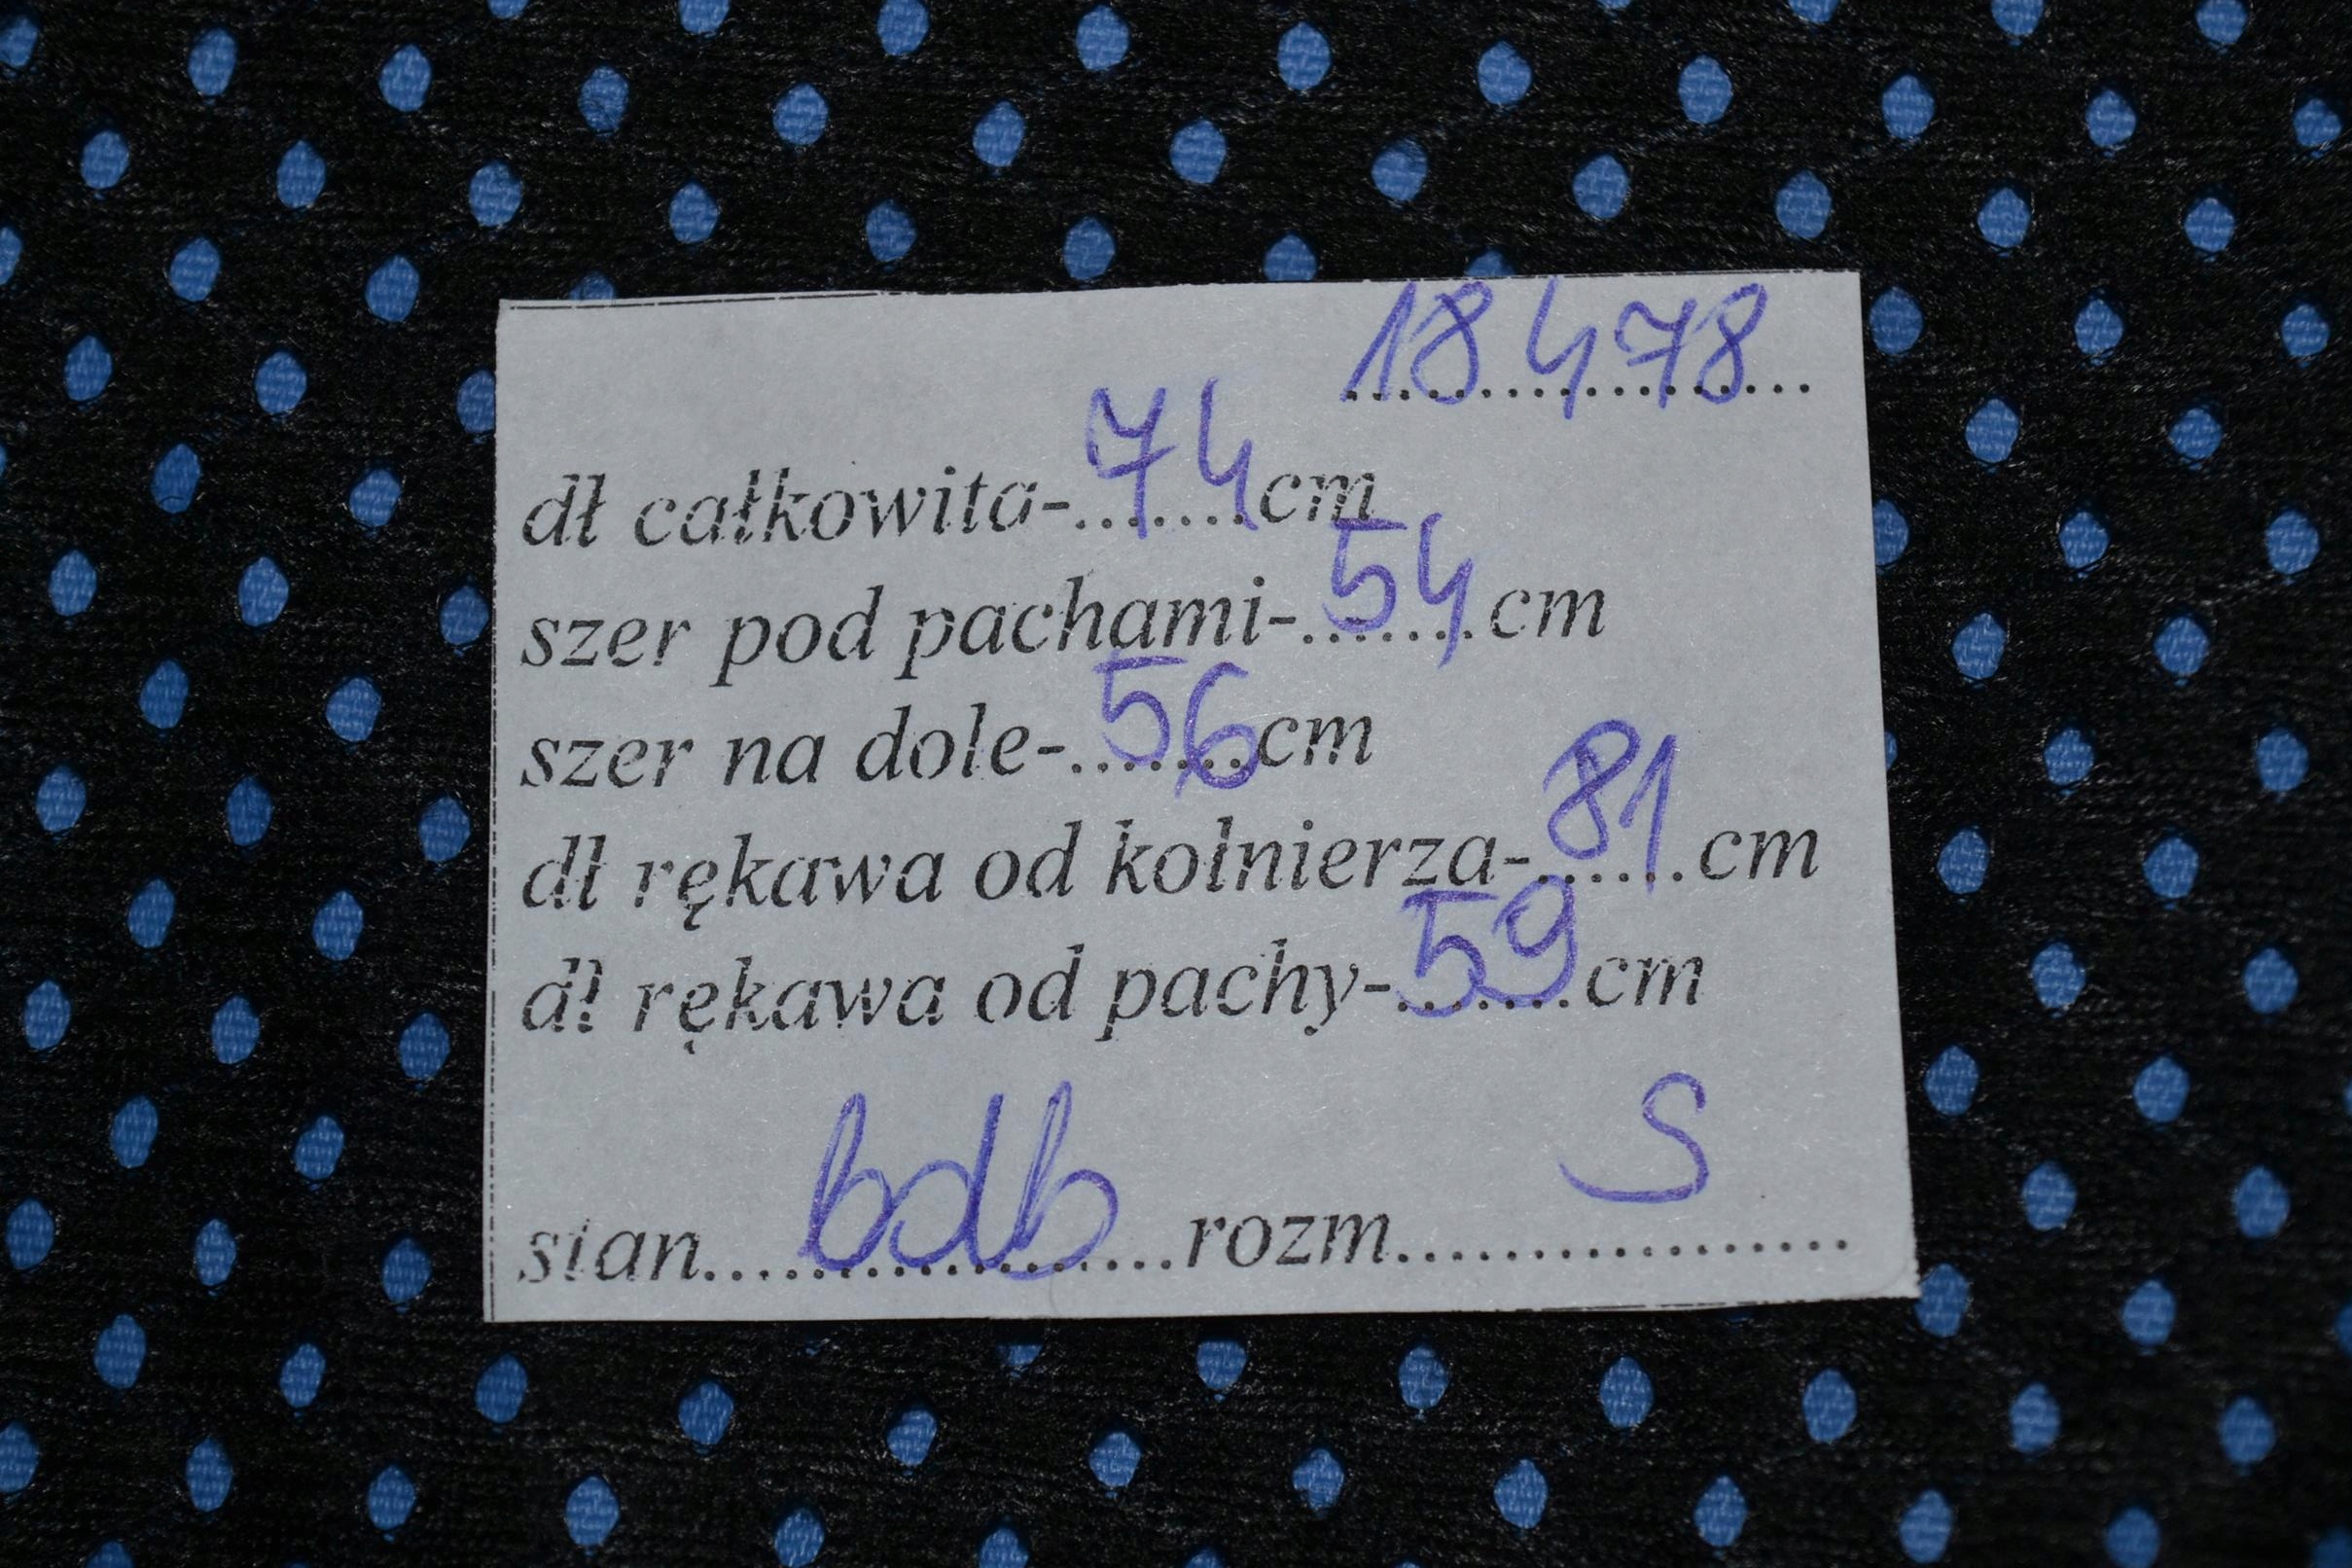 18478
dł całkowita-74cm
szer pod pachami-54cm
szer na dole-56cm
dł rękawa od kołnierza-81cm
dł rękawa od pachy-59cm
stan...bdb...rozm...S